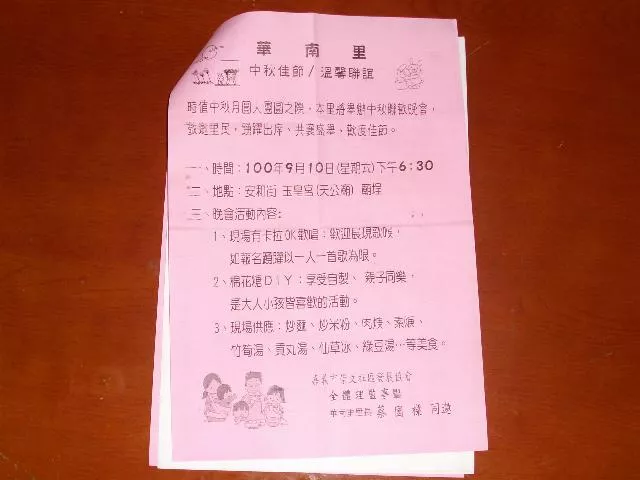 華南里
中秋佳節/溫馨聯誼
時值中秋月圓人團圓之際，本里將舉辦中秋聯歡晚會，
敬邀里民，踴躍出席、共襄盛舉、歡度佳節。
一、時間：100年9月10日(星期六)下午6:30
二、地點：安和街 玉皇宮(天公廟) 廟埕
三、晚會活動內容:
1、現場有卡拉OK歡唱：歡迎展現歌喉，
如報名踴躍以一人一首歌為限。
2、棉花糖DIY：享受自製、親子同樂，
是大人小孩皆喜歡的活動。
3、現場供應：炒麵、炒米粉、肉羹、素羹、
竹筍湯、貢丸湯、仙草冰、綠豆湯…等美食。
嘉義市崇文社區發展協會
全體理監事暨
華南里里長 蔡 同邀